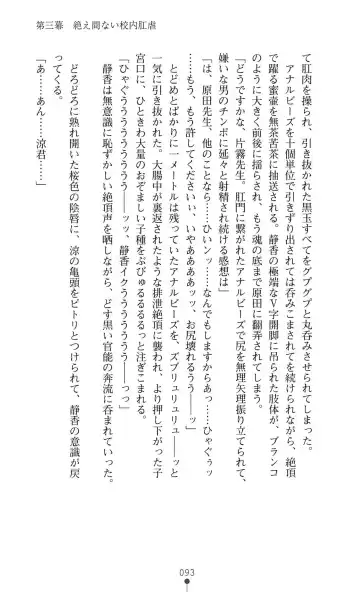 第三幕　絶え間ない校内肛虐
て肛肉を操られ、引き抜かれた黒玉すべてをグプグプと丸呑みさせられてしまった。
アナルビーズを十個単位で引きずり出されては呑みこまされてを続けられながら、絶頂
で躍る蜜壷を無茶苦茶に抽送される。静香の極端なV字開脚に吊られた肢体が、ブランコ
のように大きく前後に揺らされ、もう魂の底まで原田に翻弄されてしまう。
「どうですかな、片霧先生。肛門に繋がれたアナルビーズで尻を無理矢理振り立てられて、
嫌いな男のチンポに延々と射精され続ける感想は」
「は、原田先生、他のことなら……ひいンッ……なんでもしますからあっ……ひゃぐぅッ
……もう、もう許してくださいい、いやああああッッ、お尻壊れるうう――ッ」
とどめとばかりに一メートルは残っていたアナルビーズを、ズブリュリュリュ――ッと
一気に引き抜かれた。大腸中が裏返されたような排泄絶頂に襲われ、より押し下がった子
宮口に、ひときわ大量のおぞましい子種をぶぴゅるるるるるっと注ぎこまれる。
「ひゃぐううううううううう――ッッ、静香イクうううううう――っっ」
静香は無意識に恥ずかしい絶頂声を晒しながら、どす黒い官能の奔流に呑まれていった。
どろどろに熟れ開いた桜色の陰唇に、涼の亀頭をピトリとつけられて、静香の意識が戻
ってくる。
「あ……あん……涼君……」
093